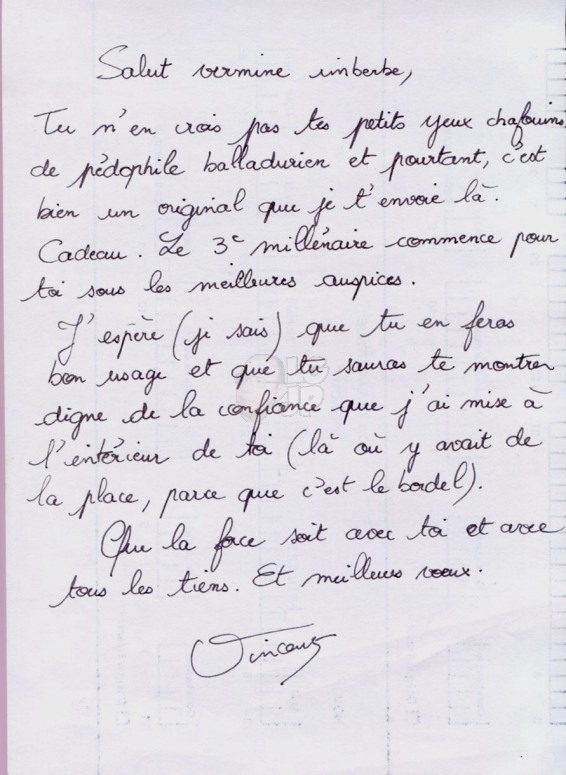 Salut vermine imberbe,
Tu n'en crois pas tes petits yeux chafouins
de pédophile balladurien et pourtant, c'est
bien un original que je t'envoie là.
Cadeau. Le 3e millénaire commence pour
toi sous les meilleures auspices.
J'espère (je sais) que tu en feras
bon usage et que tu sauras te montrer
digne de la confiance que j'ai mise à
l'intérieur de toi (là où y avait de
la place, parce que c'est le bordel).
Que la force soit avec toi et avec
tous les tiens. Et meilleurs voeux.
Vincent